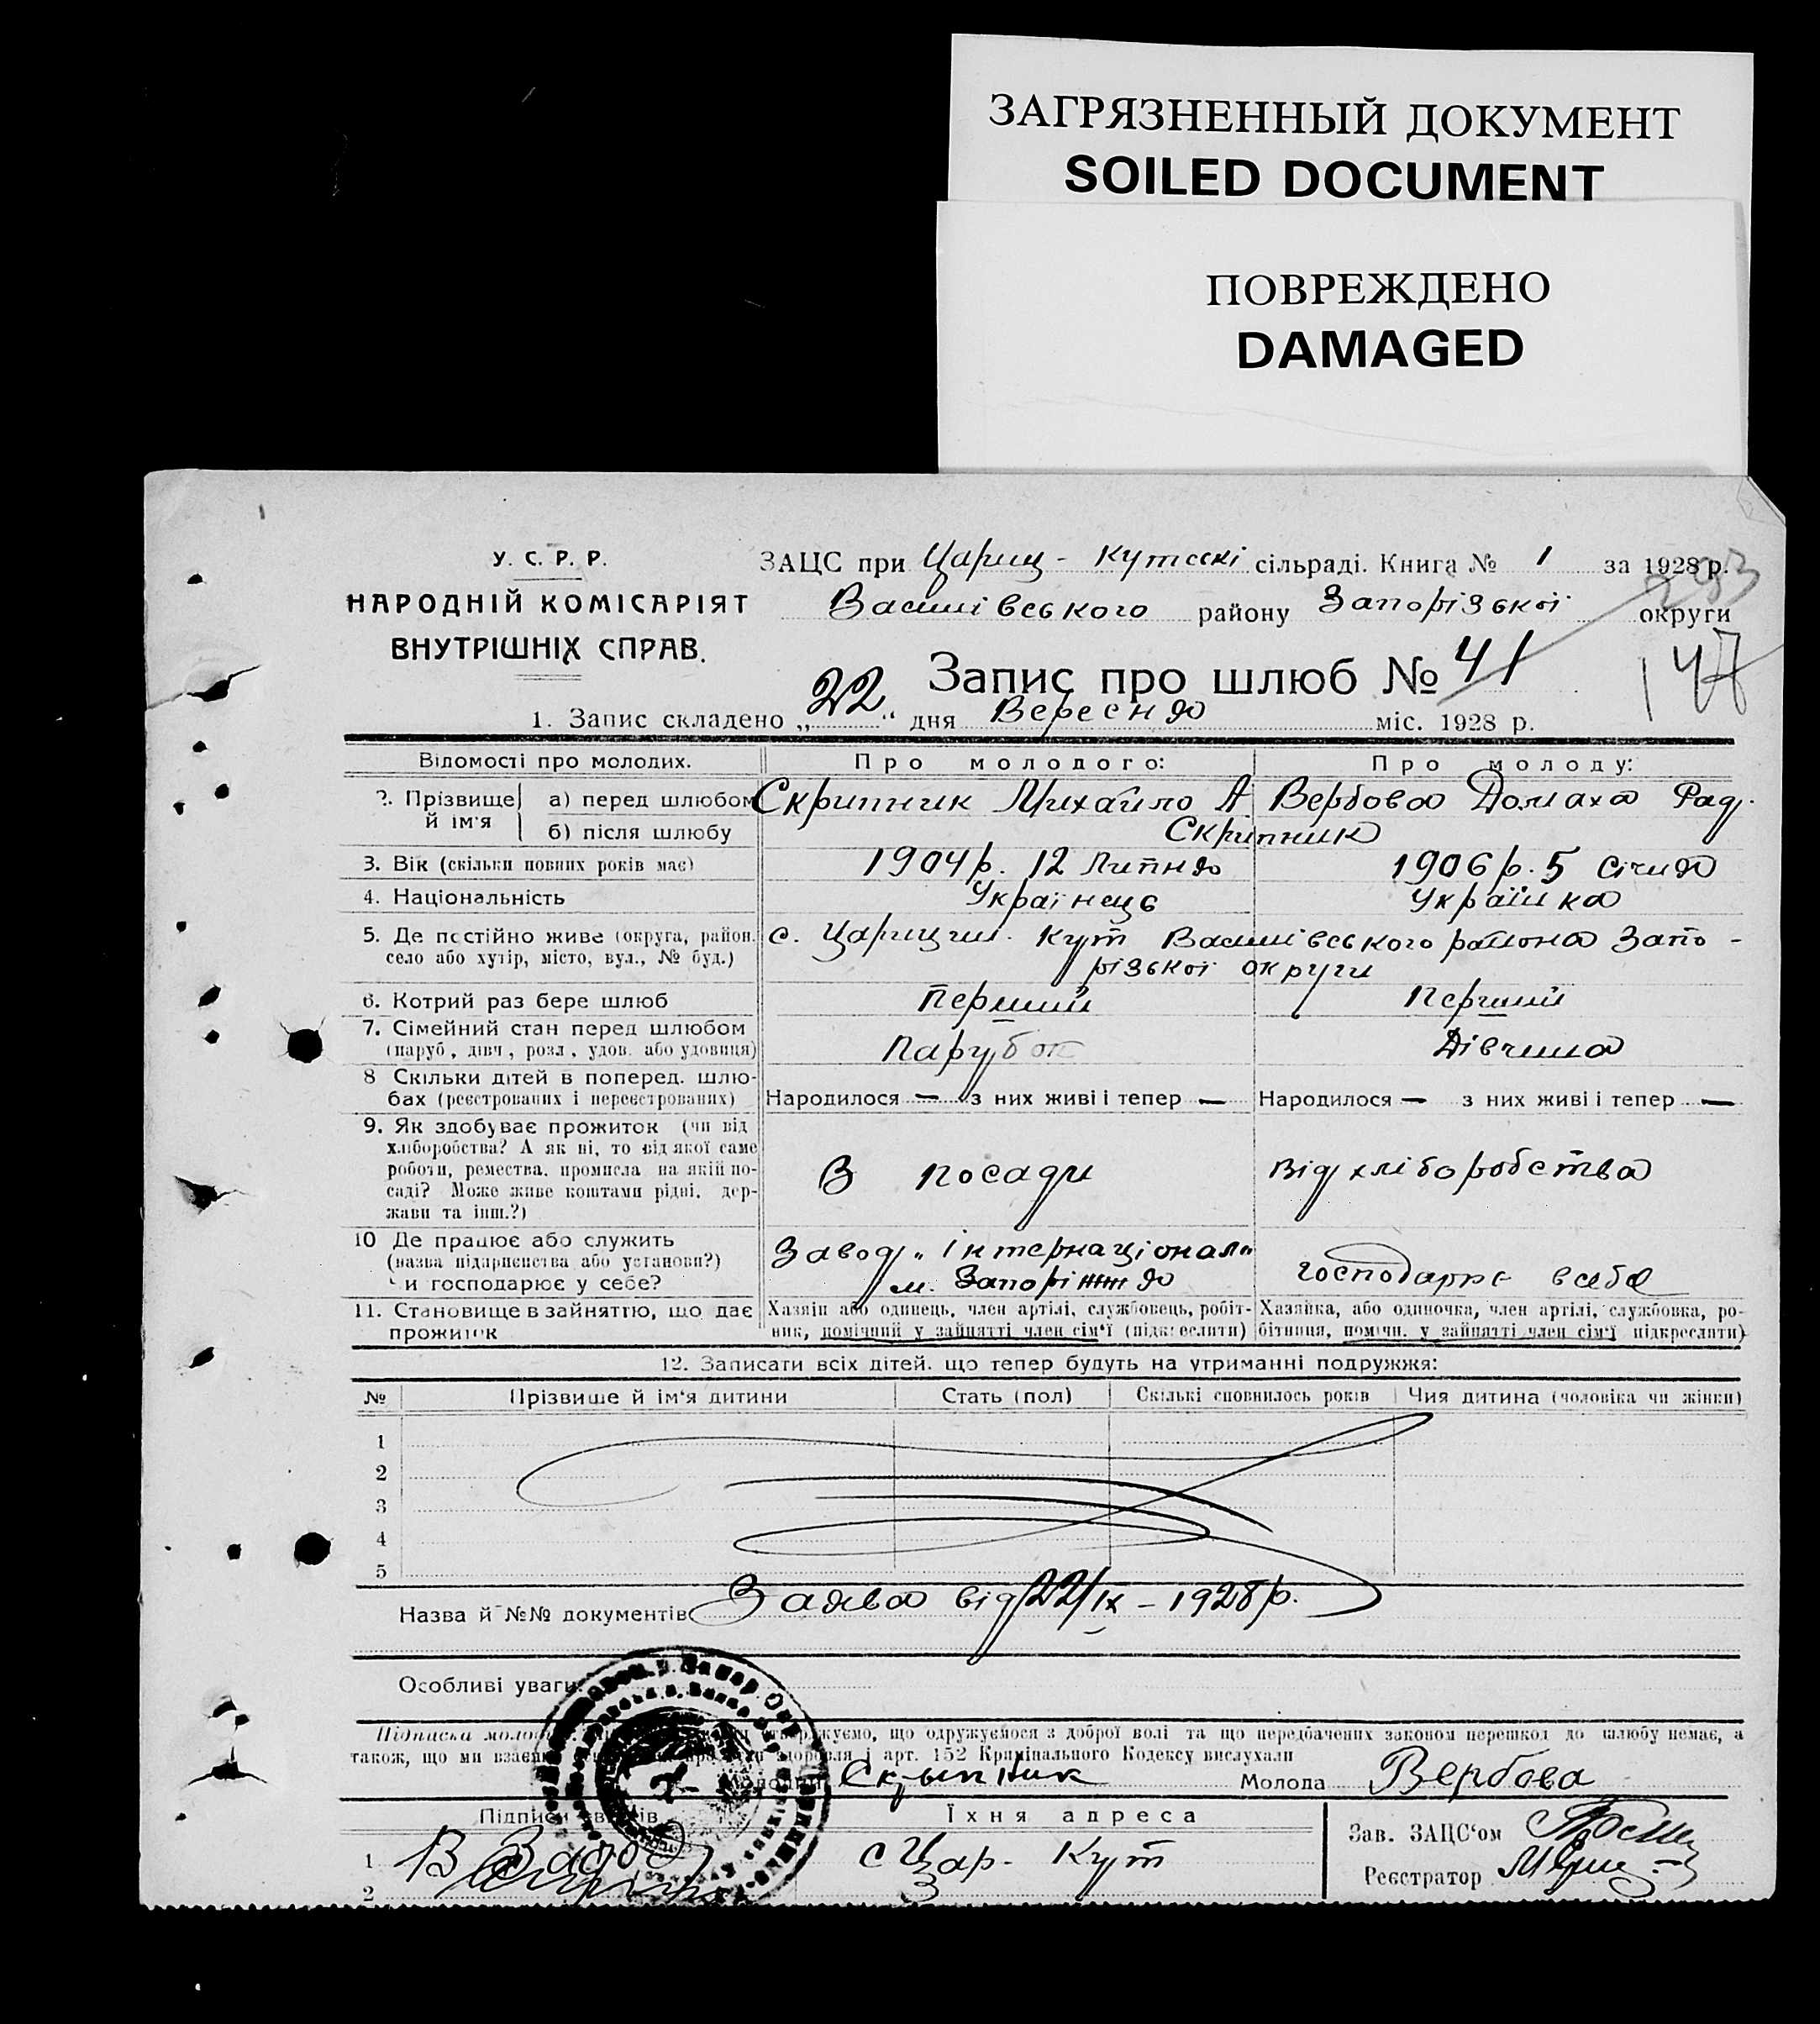 ЗАГРЯЗНЕННЫЙ ДОКУМЕНТ
SOILED DOCUMENT
ПОВРЕЖДЕНО
DAMAGED
У. С. Р. Р.
НАРОДНІЙ КОМІСАРІЯТ
ВНУТРІШНІХ СПРАВ.
ЗАЦС при Цариц - Кутській сільраді. Книга № 1 за 1928 р.
293
Василівського району Запорізької округи
Запис про шлюб № 41
147
1. Запис складено „22" дня Вересня міс. 1928 р.
Відомості про молодих. Про молодого: Про молоду:
2. Прізвище й ім'я а) перед шлюбом Скрипник Михайло А Вербова Домаха Рад.
б) після шлюбу Скрипник
3. Вік (скільки повних років має) 1904 р. 12 Липня 1906 р. 5 Січня
4. Національність Українець Українка
5. Де постійно живе (округа, район, с. Царицин. Кут Василівського района Запо -
село або хутір, місто, вул., № буд.) різької округи
6. Котрий раз бере шлюб Перший Перший
7. Сімейний стан перед шлюбом Парубок Дівчина
(паруб., дівч., розл., удов. або удовиця)
8 Скільки дітей в поперед. шлю-
бах (реєстрованих і нереєстрованих) Народилося — з них живі і тепер — Народилося — з них живі і тепер —
9. Як здобуває прожиток (чи від
хліборобства? А як ні, то від якої саме
роботи, ремества, промисла на якій по- З посади Від хліборобства
саді? Може живе коштами рідні, дер-
жави та інш.?)
10 Де працює або служить Завод „Інтернаціонал"
(назва підприємства або установи?) м. Запоріжжя господарює в себе
Чи господарює у себе?
11. Становище в зайняттю, що дає Хазяїн або одинець, член артілі, службовець, робіт- Хазяйка, або одиночка, член артілі, службовка, ро-
прожиток ник, помічний у зайнятті член сім'ї (підкреслити) бітниця, помічн. у зайнятті член сім'ї підкреслити)
12. Записати всіх дітей, що тепер будуть на утриманні подружжя:
№ Прізвище й ім'я дитини Стать (пол) Скількі сповнилось років Чия дитина (чоловіка чи жінки)
1
2
3
4
5
Назва й №№ документів Заява від 22/IX - 1928 р.
Особливі уваги:
Підписка молодих куємо, що одружуємося з доброї волі та що передбачених законом перешкод до шлюбу немає, а
також, що ми взаємно здоровля і арт. 152 Крімінального Кодексу вислухали
Молодий Скрыпник Молода Вербова
Підписи свідків Їхня адреса Зав. ЗАЦС'ом
1 с Цар. Кут Реєстратор
2